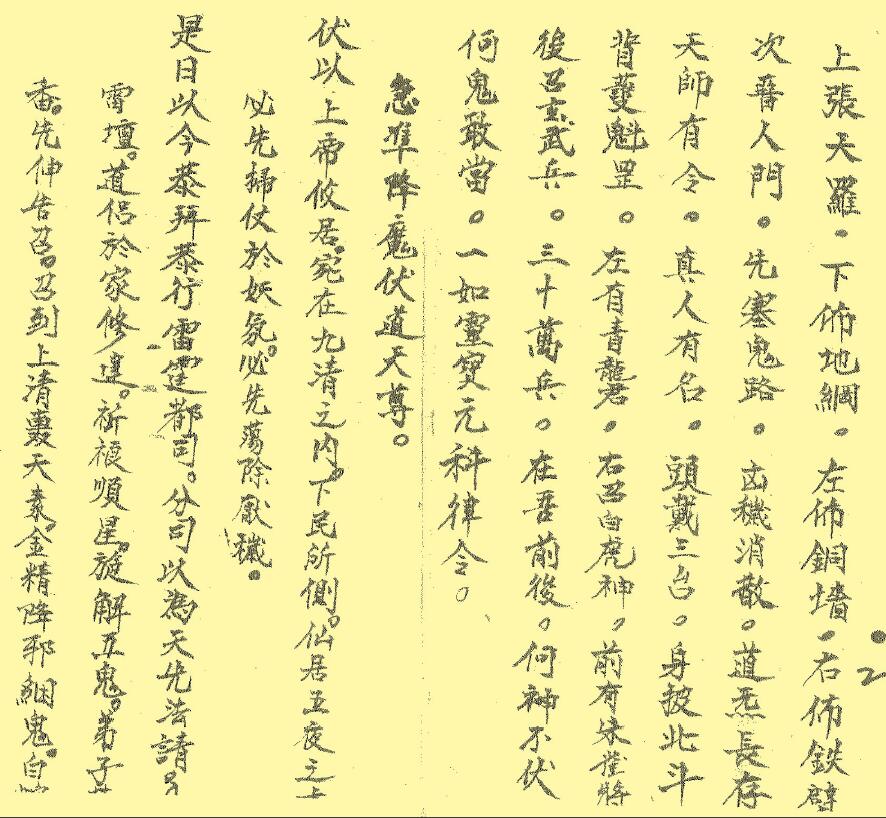 上張天羅。下佈地網。左佈銅墻。右佈鉄壁
2
次番人門。先塞鬼路。凶穢消散。道炁長存
天師有令。真人有名。頭戴三台。身披北斗
背 魁罡。左有青龍君。右召白虎神。前有朱雀將
後召玄武兵。三十萬兵。在吾前後。何神不伏
何鬼敢當。一如靈寶元科律令。
急準降魔伏道天尊。
伏以上帝攸居。宛在九清之内。下民所側。仙居五夜之上
必先掃伏於妖氛。必先蕩除厭穢。
是日以今恭拜恭行雷霆都司。分司以為天先法請。
雷壇。道侶於家修建。祈禳順星。旋解五鬼。弟子
香。先伸告召。召到上清 天 。金精降邪綑鬼。自